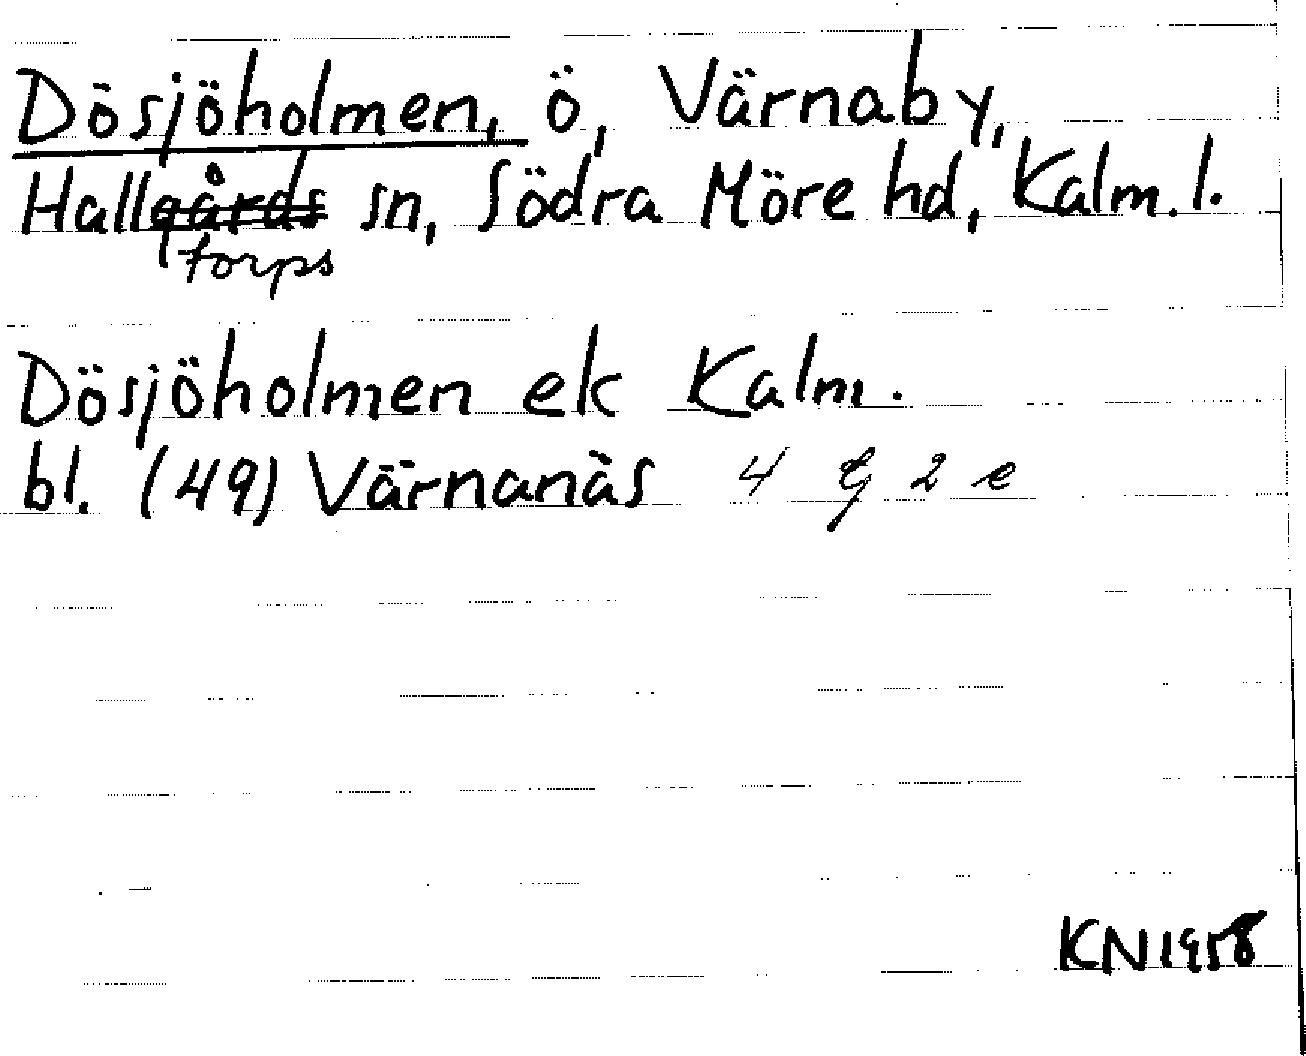 Dösjöholmen, ö, Värnaby,
Hallgårds sn, Södra Möre hd, Kalm. l.
torps
Dösjöholmen ek Kalm.
bl. (49) Värnanäs 4 G 2 e
KN 1958